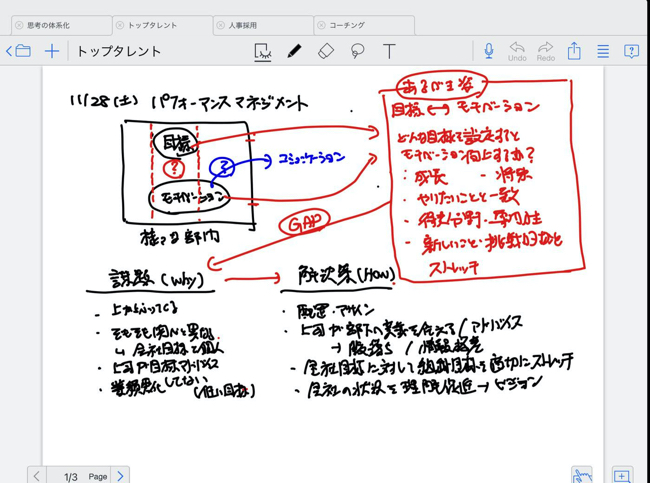 思考の体系化
トップタレント
人事採用
コーチング
トップタレント
T
Undo
Redo
11/28(土) パフォーマンスマネジメント
目標
?
?
コミュニケーション
モチベーション
部内
GAP
あるべき姿
目標 ↔ モチベーション
どんな目標を設定すると
モチベーション向上するか?
・成長 - 将来
・やりたいことと一致
- 得意分野・専門性
- 新しいこと・挑戦的なこと
ストレッチ
課題 (Why)
- 上から
- そもそも関心と異なる
↳ 会社目標と個人
・上司が目標
していない (低い目標)
解決策 (How)
・配置・アサイン
・上司が部下の を伝える / アドバイス
→ / 情報提供
・会社目標に対して組織目標を適切にストレッチ
・会社の状況を理解促進 → ビジョン
1/3 Page